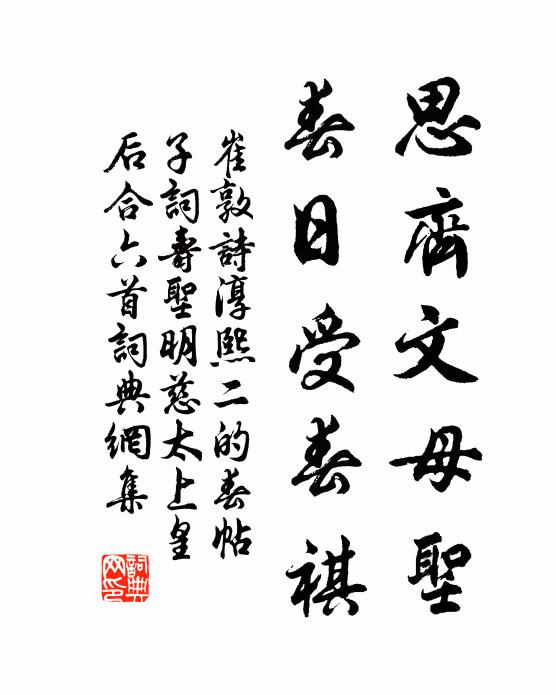 思齊文母聖
春日受春祺
崔敦詩淳熙二的春帖
子詞壽聖明慈太上皇
后合六首詞典網集
詞典网印